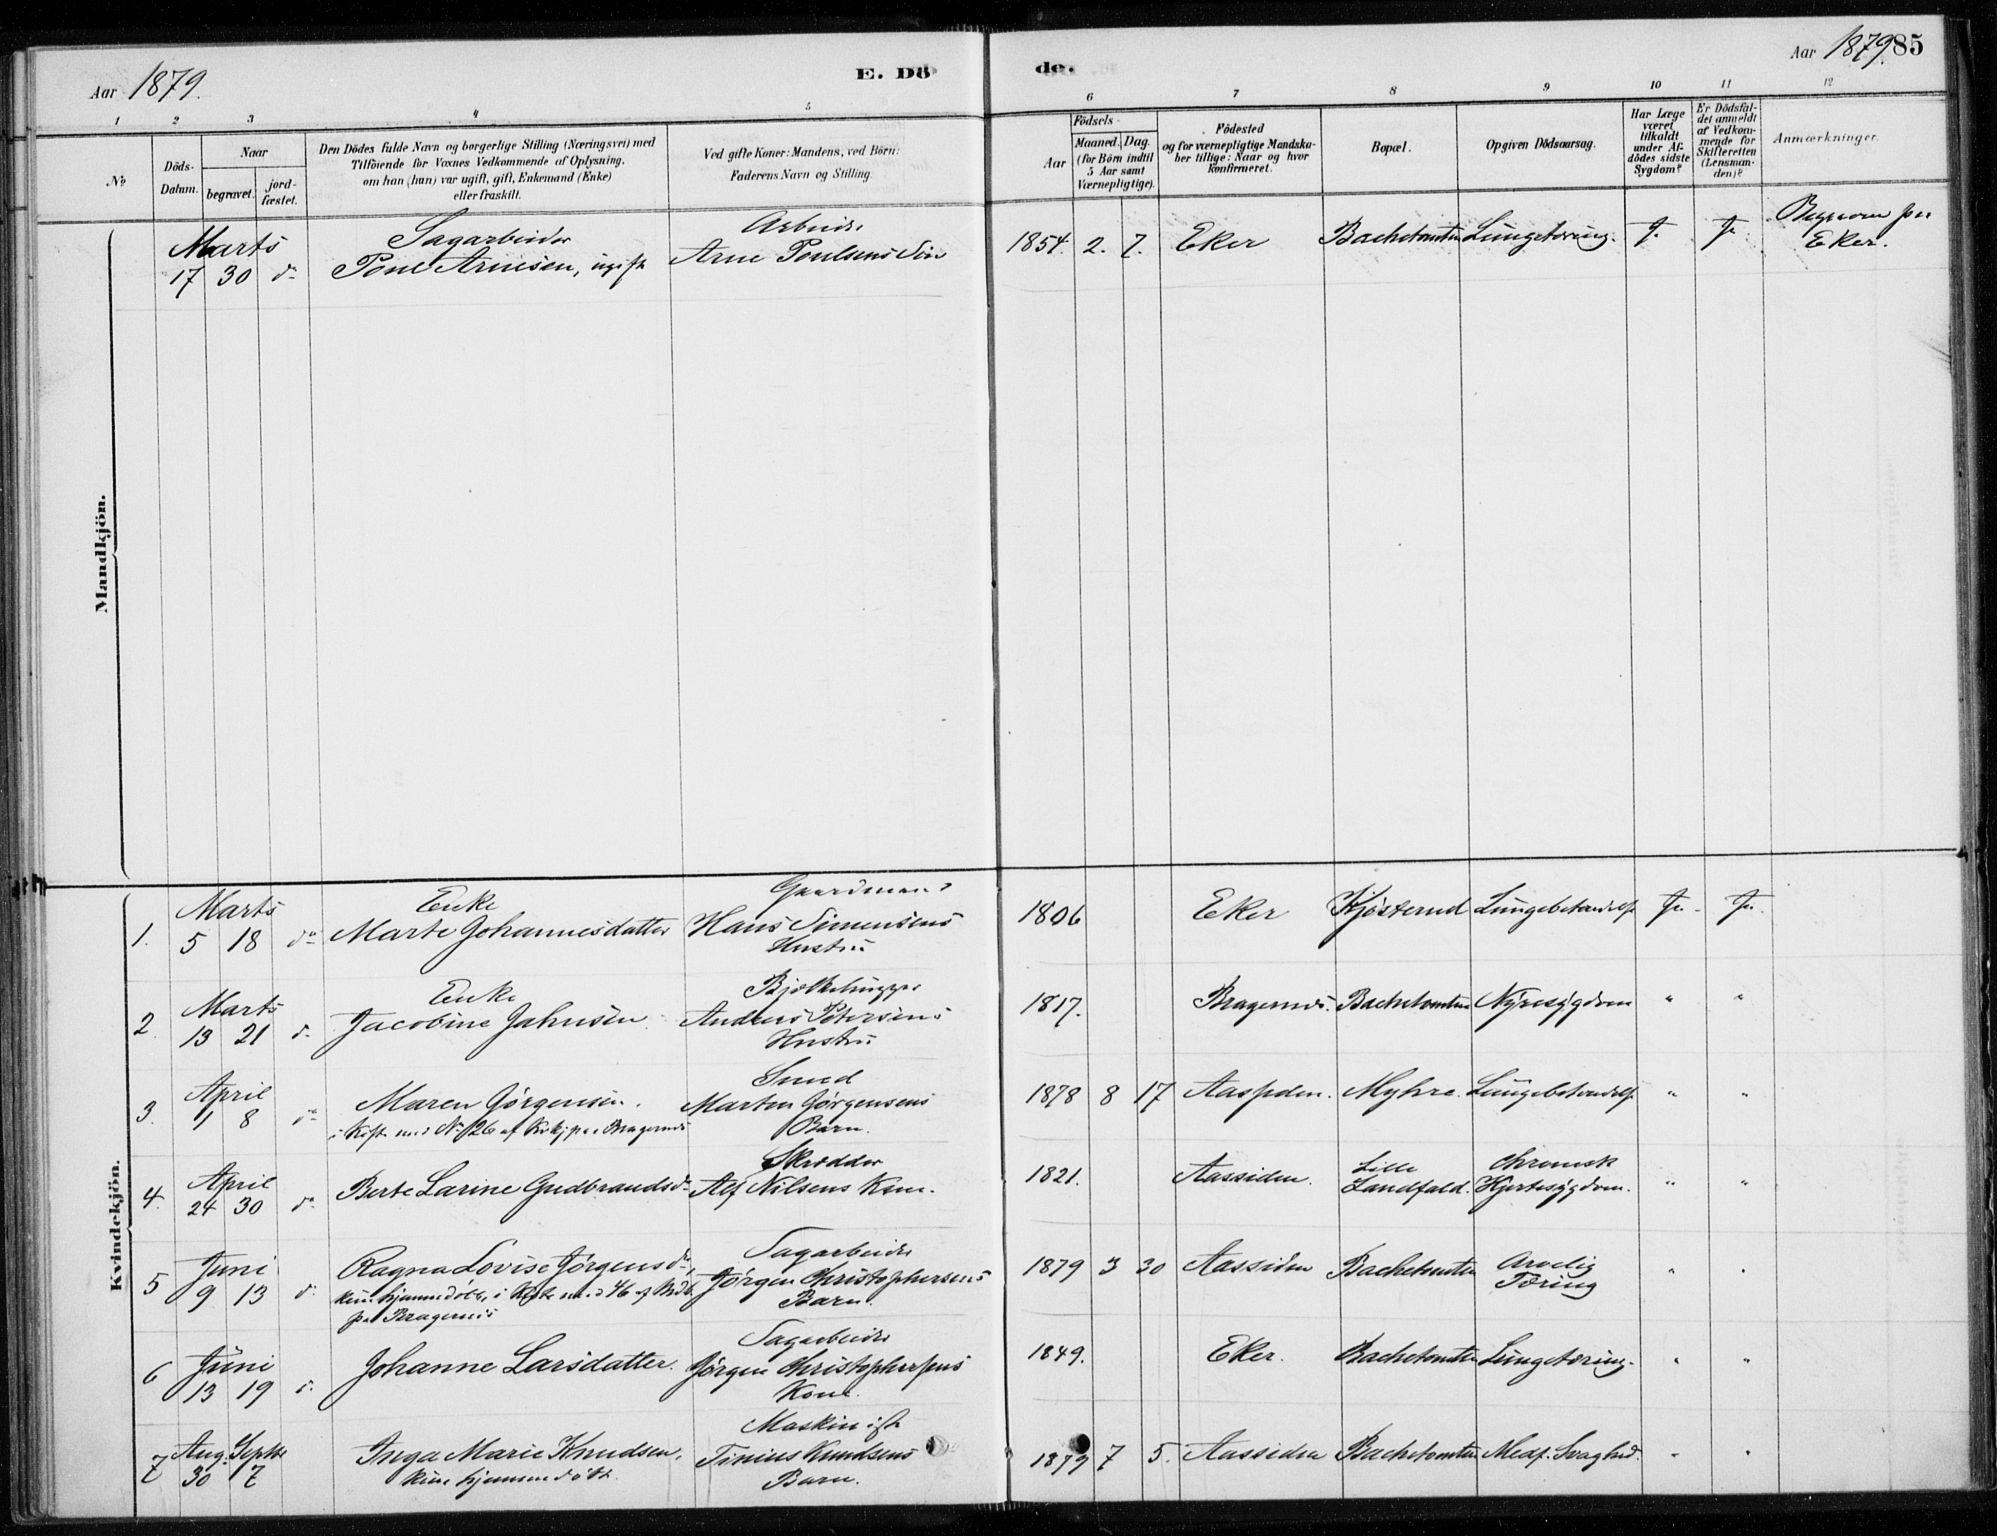 Aar 1879.
E. Dö
de.
Aar 1879. 85
1 2 3 4 5 6 7 8 9 10 11 12
No
Döds-Datum.
Naar
begravet.
jord-fæstet.
Den Dödes fulde Navn og borgerlige Stilling (Næringsvei) med
Tilföiende for Voxnes Vedkommende af Oplysning,
om han (hun) var ugift, gift, Enkemand (Enke)
eller fraskilt.
Ved gifte Koner: Mandens, ved Börn:
Faderens Navn og Stilling.
Födsels-
Aar
Maaned. Dag.
(for Börn indtil
5 Aar samt
Værnepligtige).
Födested
og for værnepligtige Mandska-
ber tillige: Naar og hvor
konfirmeret.
Bopæl.
Opgiven Dödsaarsag.
Har Læge
været
tilkaldt
under Af-
dödes sidste
Sygdom?
Er Dödsfal-
det anmeldt
af Vedkom-
mende for
Skifteretten
(Lensman-
den)?
Anmærkninger.
Mandkjön.
Marts Sagarbeider Arbeider Begraven paa
17 30 do Poul Arnesen, ugift Arne Poulsens Søn 1854. 2. 7. Eker Bachetomten Lungetæring. J. J. Eker.
Kvindekjön.
Marts Enke Gaardmand
1. 5 18 do Marte Johannesdatter Hans Simensens 1806 Eker Kjøsterud Lungebetændelse Ja. Ja.
Hustru
Marts Enke Bjelkehugger
2. 13 21 do Jacobine Jahnsen Anders Petersens 1817. Bragernes. Bachetomten Nyresygdom " "
Hustru
April Smed
3. 1 8 do Maren Jørgensen. Marten Jørgensens 1878 8 17 Aassiden. Myhre. Lungebetændelse " "
i Kiste med No 26 af paa Bragernes Barn.
April Skrædder Lille chronisk
4. 24 30 do Berte Larine Gudbrandsdr Alf Nilsens Kone. 1821. Aassiden. Landfald. Hjertesygdom. " "
Juni Ragna Lovise Jørgensdr, Sagarbeider Arvelig
5 9 13 do kun hjemmedøbt, i Kiste med 46 af Jørgen Christophersens 1879 3 30 Aassiden Bachetomten Tæring " "
paa Bragernes Barn.
Juni Sagarbeider
6 13 19 do Johanne Larsdatter. Jørgen Christophersens 1849. Eker. Bachetomten Lungetæring. " "
Kone.
Aug. Septbr Maskinist
7 30 7 Inga Marie Knudsen, Tinius Knudsens 1879 7 5. Aassiden Bachetomten Medf. Svaghed. " "
kun hjemmedøbt. Barn.